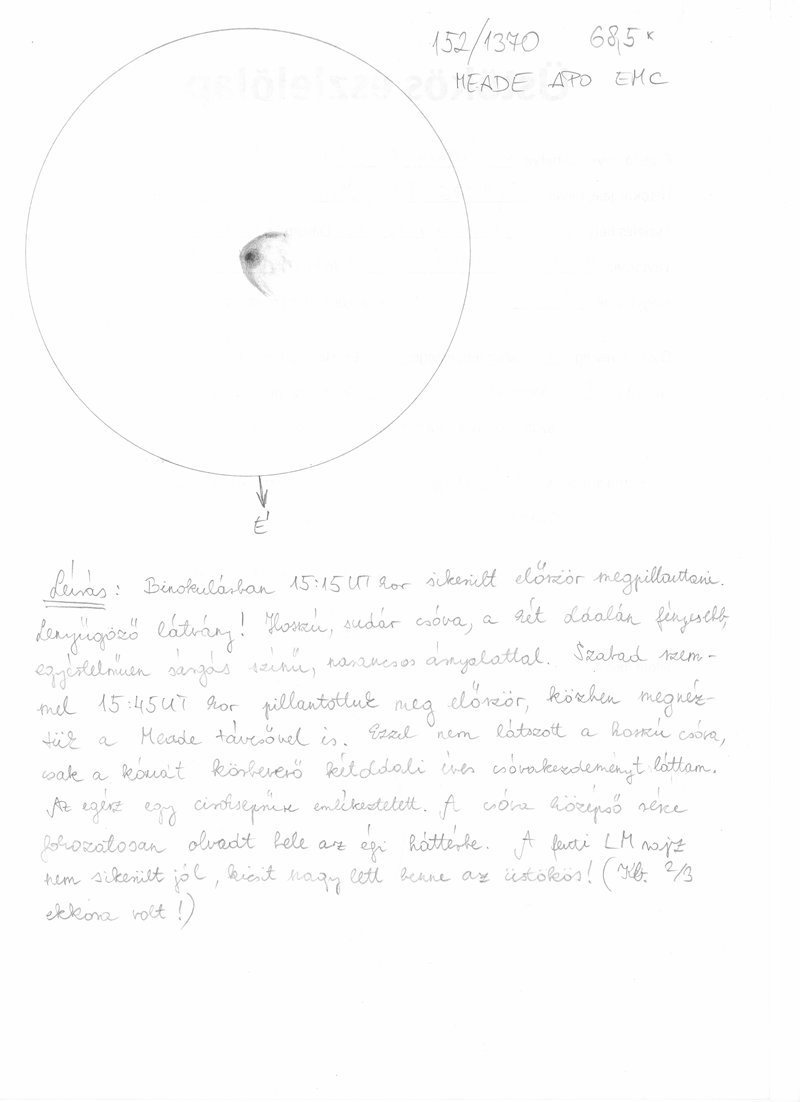 152/1370 68,5x
MEADE APO EMC
É
Leírás: Binokulárban 15:15 UT kor sikerült először megpillantani.
Lenyűgöző látvány! Hosszú, sudár csóva, a két oldalán fényesebb,
egyértelműen sárgás színű, narancsos árnyalattal. Szabad szem-
mel 15:45 UT kor pillantottuk meg először, közben megnéz-
tük a Meade távcsővel is. Ezzel nem látszott a hosszú csóva,
csak a kómát körbeverő kétoldali íves csóvakezdeményt láttam.
Az egész egy cirokseprűre emlékeztetett. A csóva középső része
fokozatosan olvadt bele az égi háttérbe. A fenti LM rajz
nem sikerült jól, kicsit nagy lett benne az üstökös! (Kb. 2/3
ekkora volt!)